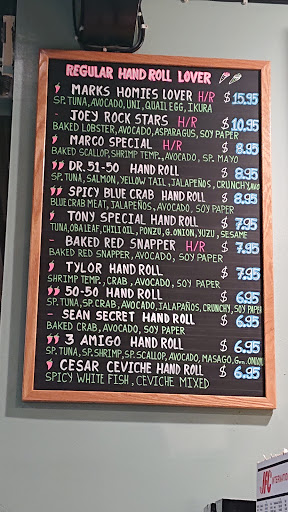 REGULAR HAND ROLL LOVER
MARKS HOMIES LOVER H/R $15.95
SP.TUNA,AVOCADO,UNI,QUAIL EGG,IKURA
- JOEY ROCK STARS H/R $10.95
BAKED LOBSTER,AVOCADO,ASPARAGUS,SOY PAPER
MARCO SPECIAL H/R $8.95
BAKED SCALLOP,SHRIMP TEMP.,AVOCADO, SP. MAYO
DR.51-50 HAND ROLL $8.95
SP,TUNA,SALMON,YELLOW TAIL,JALAPEÑOS,CRUNCHY,AVO
SPICY BLUE CRAB HAND ROLL $8.95
BLUE CRAB MEAT,JALAPEÑOS,AVOCADO, SOY PAPER
TONY SPECIAL HAND ROLL $7.95
TUNA,OBA LEAF,CHILI OIL, PONZU,G.ONION,YUZU,SESAME
- BAKED RED SNAPPER H/R $7.95
BAKED RED SNAPPER,AVOCADO, SOY PAPER
TYLOR HAND ROLL $7.95
SHRIMP TEMP., CRAB, AVOCADO, SOY PAPER
50-50 HAND ROLL $6.95
SP.TUNA,SP.CRAB,AVOCADO,JALAPAÑOS,CRUNCHY,SOY PAPER
- SEAN SECRET HAND ROLL $6.95
BAKED CRAB, AVOCADO, SOY PAPER
3 AMIGO HAND ROLL $6.95
SP.TUNA,SP.SHRIMP,SP.SCALLOP,AVOCADO,MASAGO,Grn.ONION
CESAR CEVICHE HAND ROLL $6.95
SPICY WHITE FISH, CEVICHE MIXED
JFC